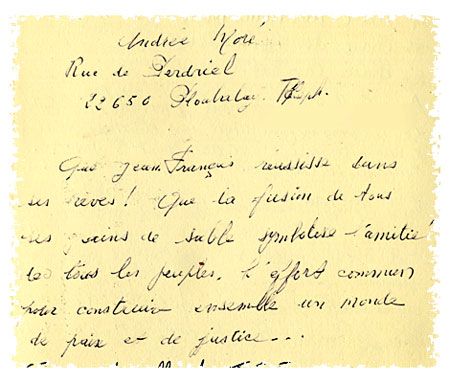 Andrée Moré
Rue de Perdriel
22650 Ploubalay. Téléph.
Que Jean François réussisse dans
ses rêves! Que la fusion de tous
ses grains de sable symbolise l'amitié
de tous les peuples. L'effort commun
pour construire ensemble un monde
de paix et de justice...